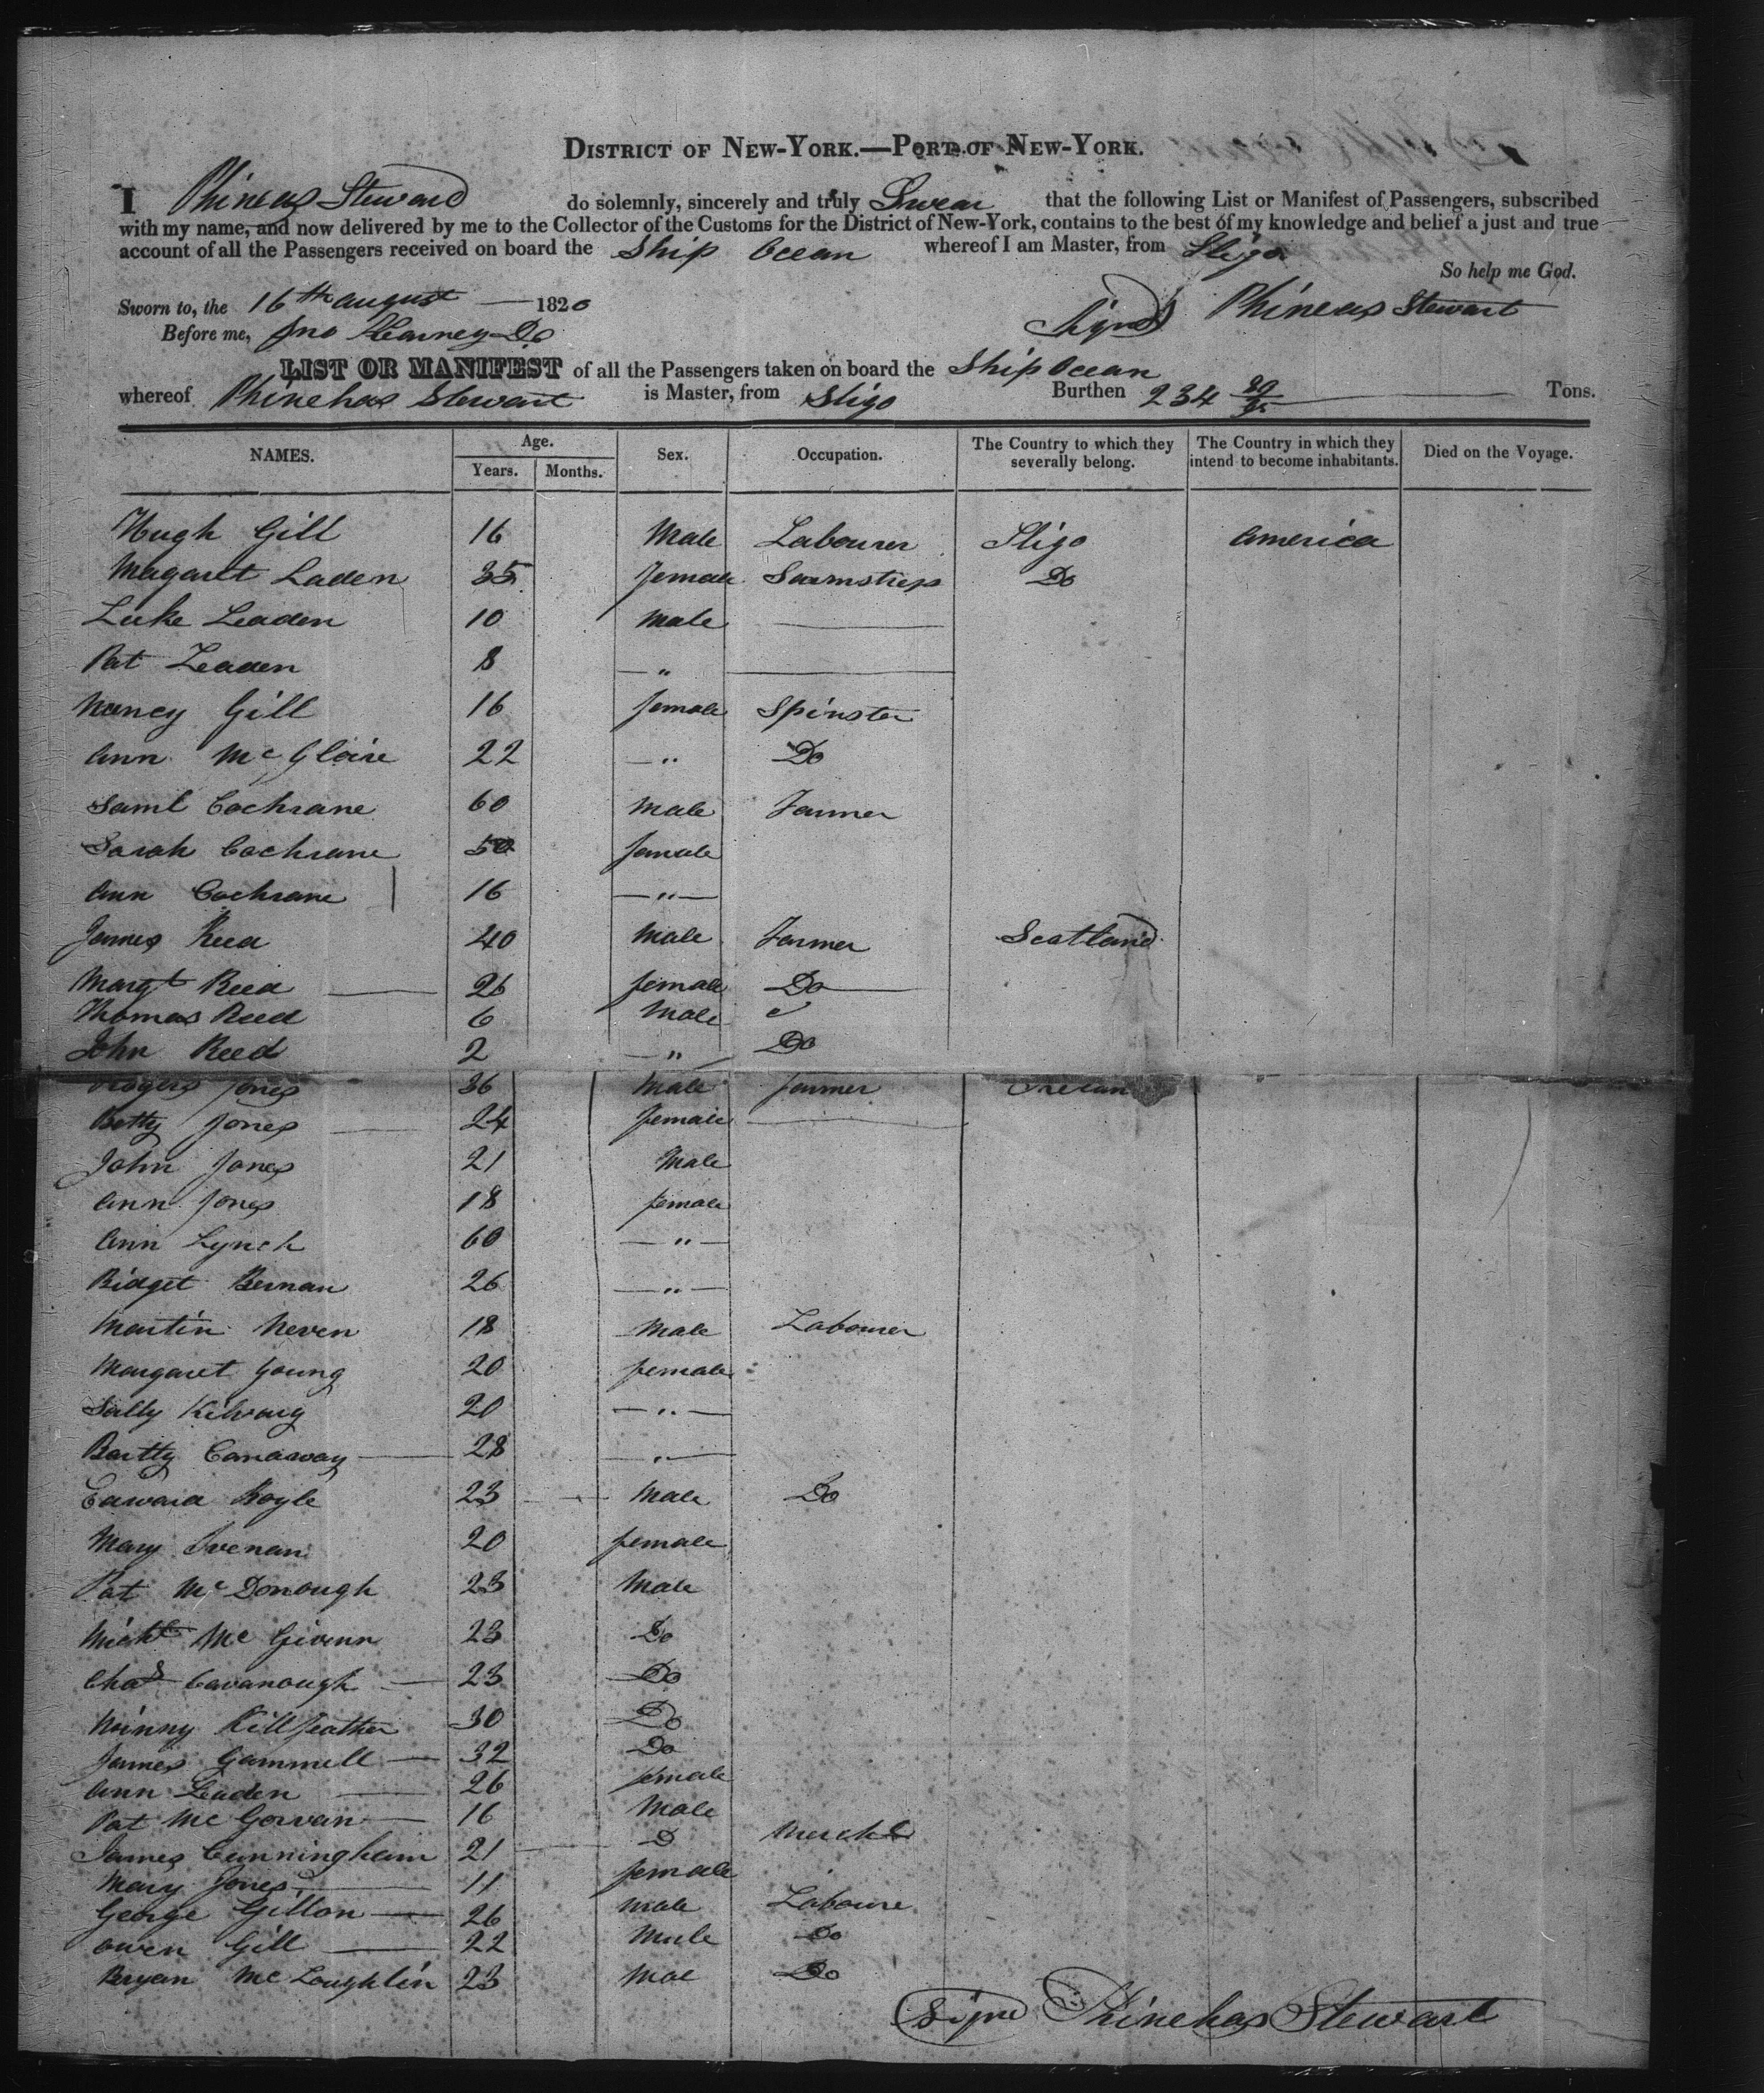 DISTRICT OF NEW-YORK.—PORT OF NEW-YORK.
I Phineas Steward do solemnly, sincerely and truly Swear that the following List or Manifest of Passengers, subscribed
with my name, and now delivered by me to the Collector of the Customs for the District of New-York, contains to the best of my knowledge and belief a just and true
account of all the Passengers received on board the Ship Ocean whereof I am Master, from Sligo
So help me God.
Sworn to, the 16th august 1820
Signd Phineas Stewart
Before me, Jno Kearney
LIST OR MANIFEST of all the Passengers taken on board the Ship Ocean
whereof Phinehas Stewart is Master, from Sligo Burthen 234 Tons.
NAMES. Age. Years. Months. Sex. Occupation. The Country to which they severally belong. The Country in which they intend to become inhabitants. Died on the Voyage.
Hugh Gill 16 Male Labourer Sligo America
Magaret Laden 35 female Seamstress Do
Luke Leaden 10 Male
Pat Leaden 8 "
Nancy Gill 16 female Spinster
Ann McGloire 22 " Do
Saml Cochrane 60 Male Farmer
Sarah Cochrane 50 female
Ann Cochrane 16 "
James Reed 40 Male Farmer Scotland
Margt Reed 26 female Do
Thomas Reed 6 Male
John Reed 2 " Do
Rogers Jones 36 Male farmer
Betty Jones 24 female
John Jones 21 Male
Ann Jones 18 female
Ann Lynch 60 "
Bidget 26 "
Martin Neven 18 Male Labourer
Margaret Young 20 female
Sally 20 "
Bartty Canaway 28 "
Edward 23 Male Do
Mary 20 female
Pat McDonough 23 Male
Michl McGivern 23 Do
Chas Cavanough 23 Do
Killfeather 30 Do
James Gammell 32 Do
Ann Leaden 26 female
Pat McGorvan 16 Male
James Cunningham 21 D Mercht
Mary Jones 11 female
George Gillon 26 male Laboure
Owen Gill 22 Male Do
Bryan McLoughlin 23 Mal Do
Signd Phinehas Stewart